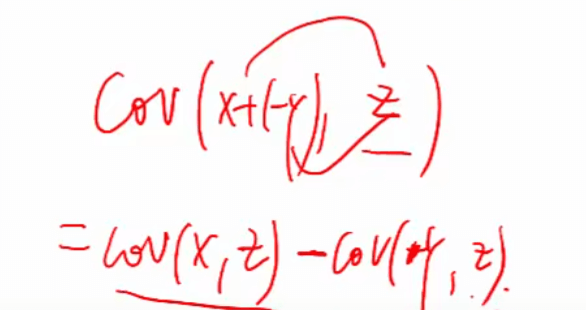 Cov(x+(-y), z)
= Cov(x, z) - Cov(y, z).